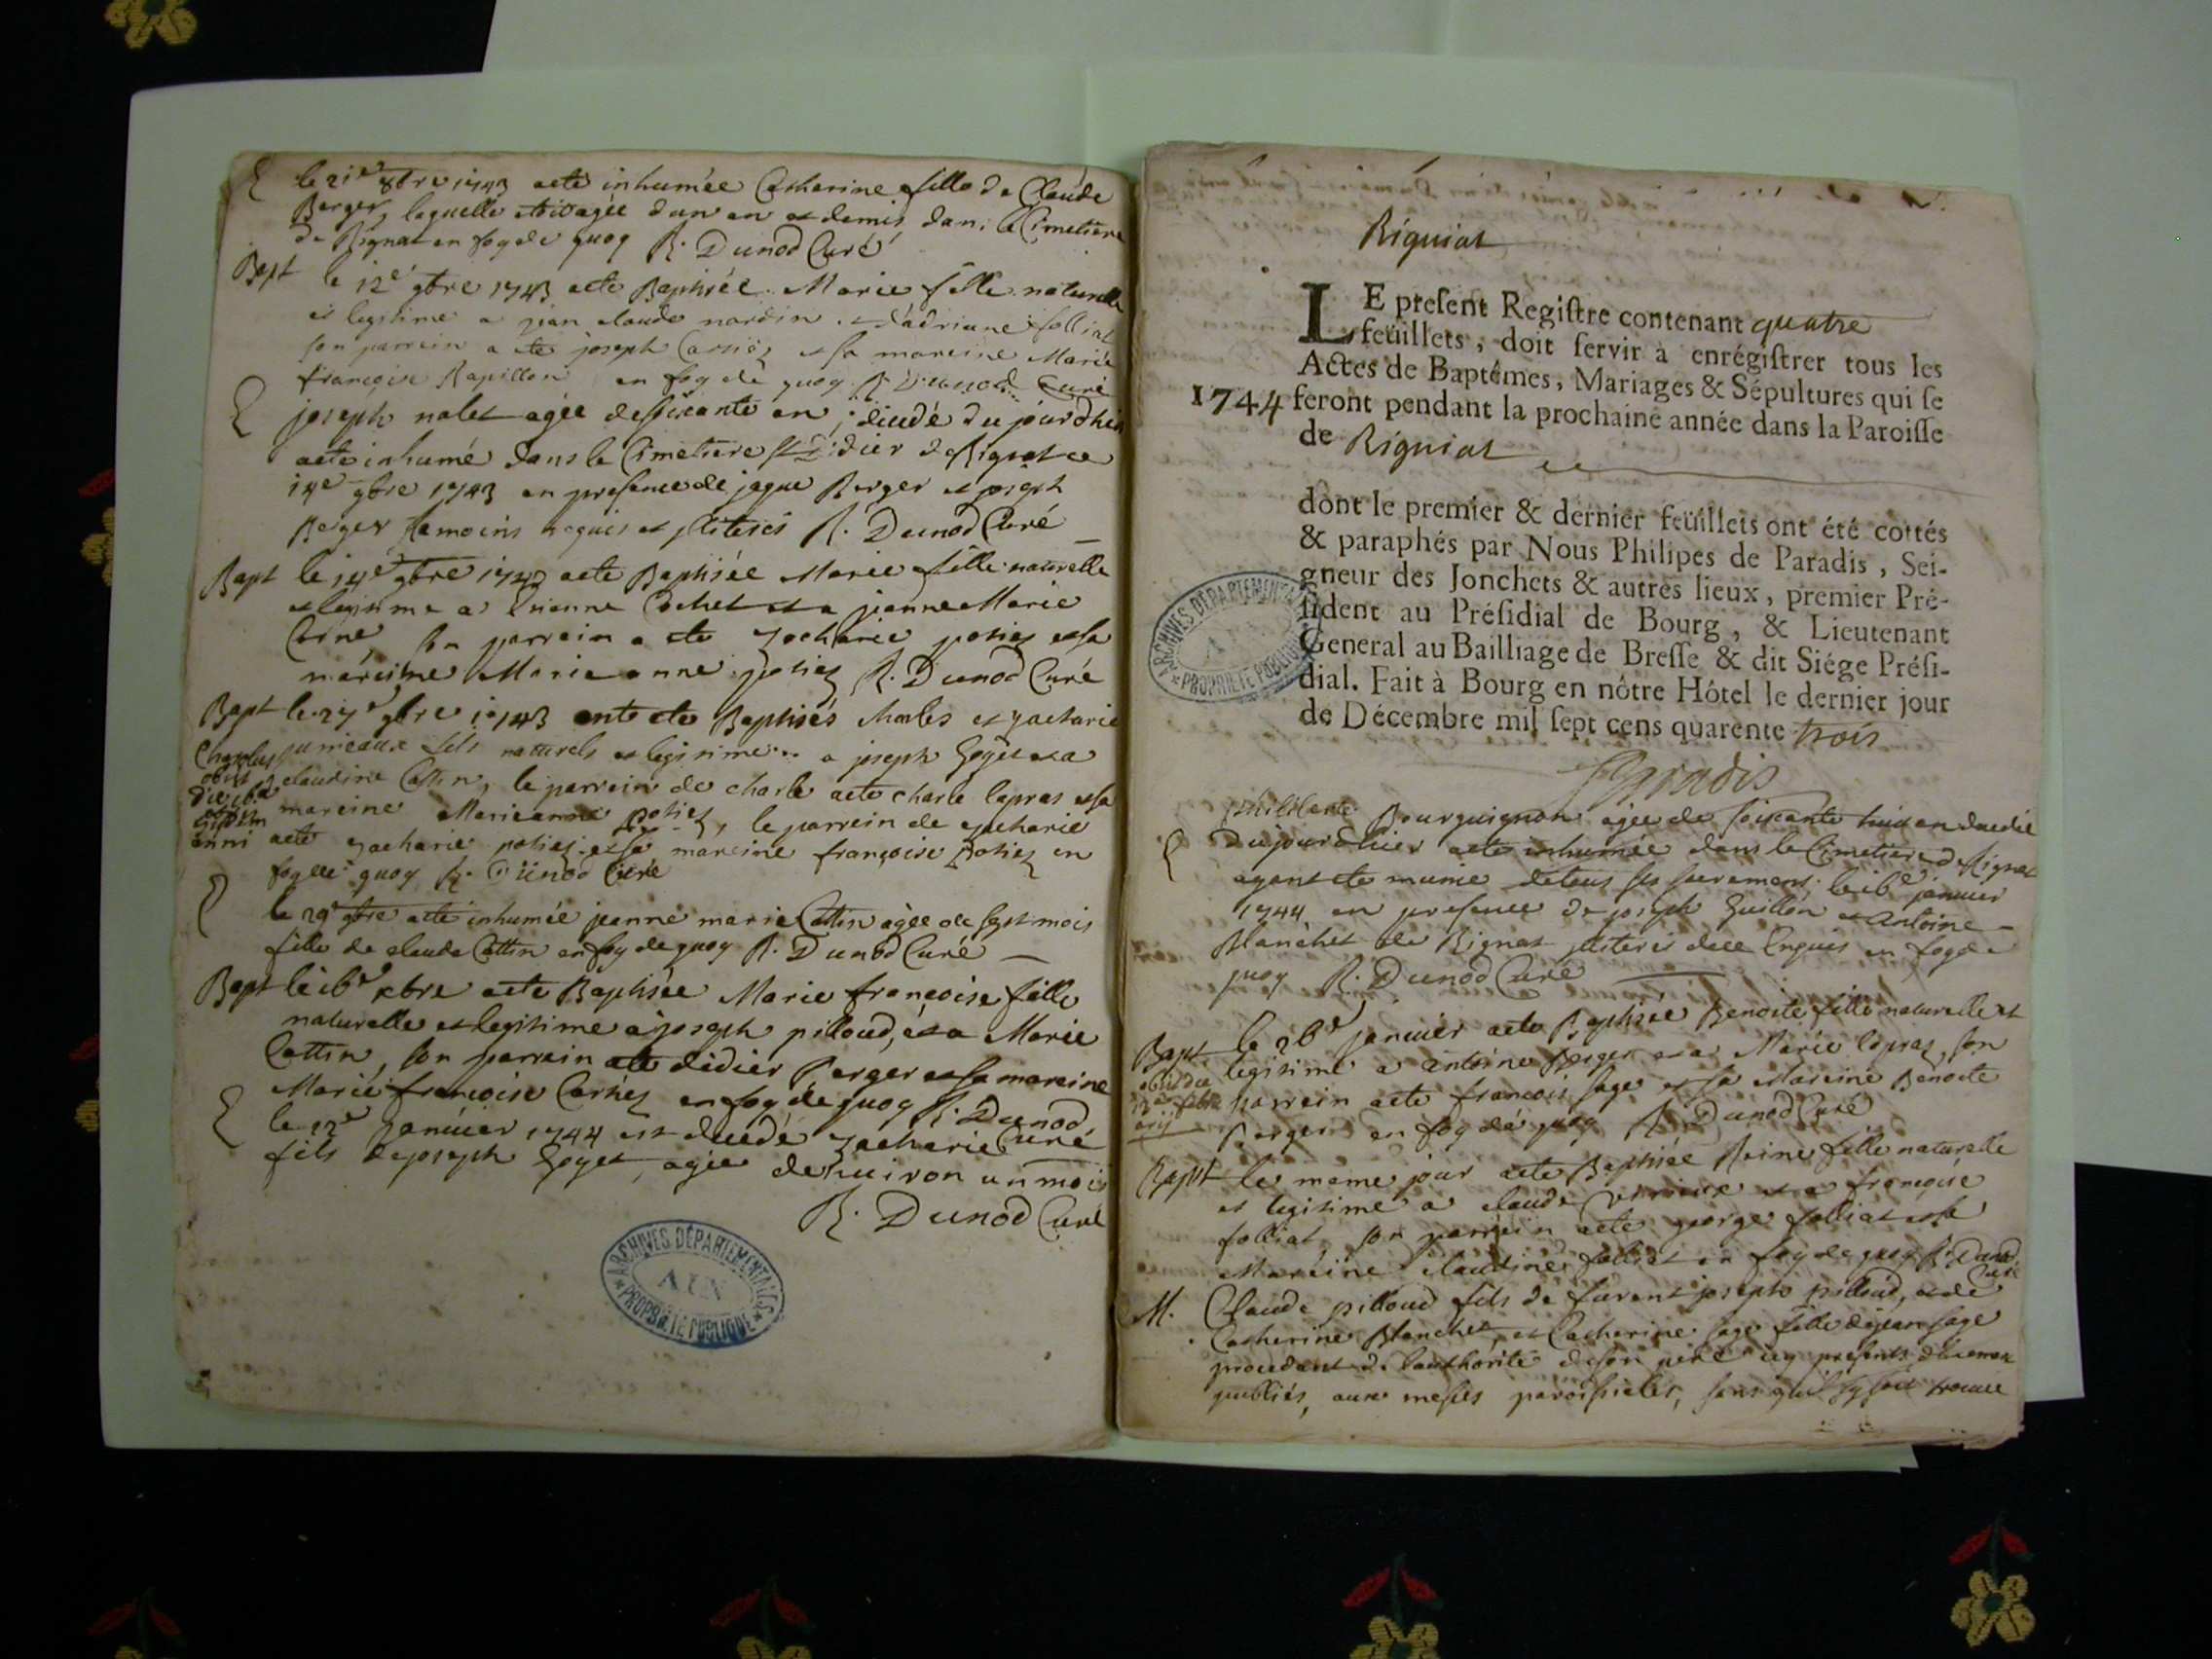 le 21e 8bre 1743 aeté inhumée Catherine fille de Claude
Berger, laquelle étoit agée dun an et demis dans le Cimetiere
de Rignat en foy de quoy R. Dunod Curé
Bapt le 12e 9bre 1743 aeté Baptisée Marie fille naturelle
et legitime a jean claude nardin et d'adriane folliat
son parrein a eté joseph et sa mareine Marie
françoise Rapillon en foy de quoy R. Dunod Curé
joseph nalet agée de soixante an, décédé du jour dhier
aeté inhumé dans le Cimetiere St Didier de Rignat ce
14e 9bre 1743 en presence de jaque Berger et joseph
Berger temoins requis et illiterés R. Dunod Curé
Bapt le 14e 9bre 1743 aeté Baptisée Marie fille naturelle
et legitime a Etienne Cochet et a jeanne Marie
son parrein a eté zacharie potiez et sa
mareine Marie anne potiez R. Dunod Curé
Bapt le 27e 9bre 1743 ont eté Baptisés charles et zacharie
jumeaux fils naturels et legitimes a joseph Goyet et a
Charolus
obiit
die 16a
anni
claudine Cottin, le parrein de charle aeté charle lapras et sa
mareine Marie anne potiez, le parrein de zacharie
aeté zacharie potiez et sa mareine françoise potiez en
foy de quoy R. Dunod Curé
le 29e 9bre aeté inhumée jeanne marie Cottin agée de sept mois
fille de claude Cottin en foy de quoy R. Dunod Curé
Bapt le 16e xbre aeté Baptisée Marie françoise fille
naturelle et legitime a joseph pilloud, et a Marie
Cottin, son parrein aeté didier Berger et sa mareine
Marie françoise en foy de quoy R. Dunod
Curé
le 12e Janvier 1744 est decedé zacharie
fils de joseph Goyet, agée denviron un mois
R. Dunod Curé
ARCHIVES DÉPARTEMENTALES
AIN
PROPRIÉTÉ PUBLIQUE
Riguiat
LE present Registre contenant quatre
feüillets, doit servir à enrégistrer tous les
Actes de Baptêmes, Mariages & Sépultures qui se
1744 feront pendant la prochaine année dans la Paroisse
de Riguiat
dont le premier & dernier feüillets ont été cottés
& paraphés par Nous Philipes de Paradis, Sei-
gneur des Jonchets & autres lieux, premier Pré-
sident au Présidial de Bourg, & Lieutenant
General au Bailliage de Bresse & dit Siége Prési-
dial. Fait à Bourg en nôtre Hôtel le dernier jour
de Décembre mil sept cens quarente trois
Paradis
ARCHIVES DÉPARTEMENTALES
AIN
PROPRIÉTÉ PUBLIQUE
philiberte Bourguignon agée de soixante huit an decedée
du jourdhier aeté inhumée dans le Cimetiere de Rignat
ayant eté munie de tous ses sacremens, le 16e janvier
1744 en presence de joseph Guillon et Antoine
Blanchet de Rignat illiterés de ce Enquis en foy de
quoy R. Dunod Curé
Bapt le 26e janvier aeté Baptisée Benoite fille naturelle et
legitime a antoine Berger et a Marie lapraz, son
obiit die
parrein aeté francois sage et sa Mareine Benoite
Berger en foy de quoy R. Dunod Curé
Bapt le meme jour aeté Baptisée Reine fille naturelle
et legitime a claude et a françoise
folliat, son parrein aeté george folliat et sa
Mareine claudine folliat en foy de quoy R. Dunod
Curé
M. Claude pilloud fils de furent joseph pilloud, et de
Catherine Blanchet, et Catherine sage fille de jean sage
procedant de lauthorité de son pere icy presents
publiés, aux messes paroissieles, sans quil sy soit trouvé